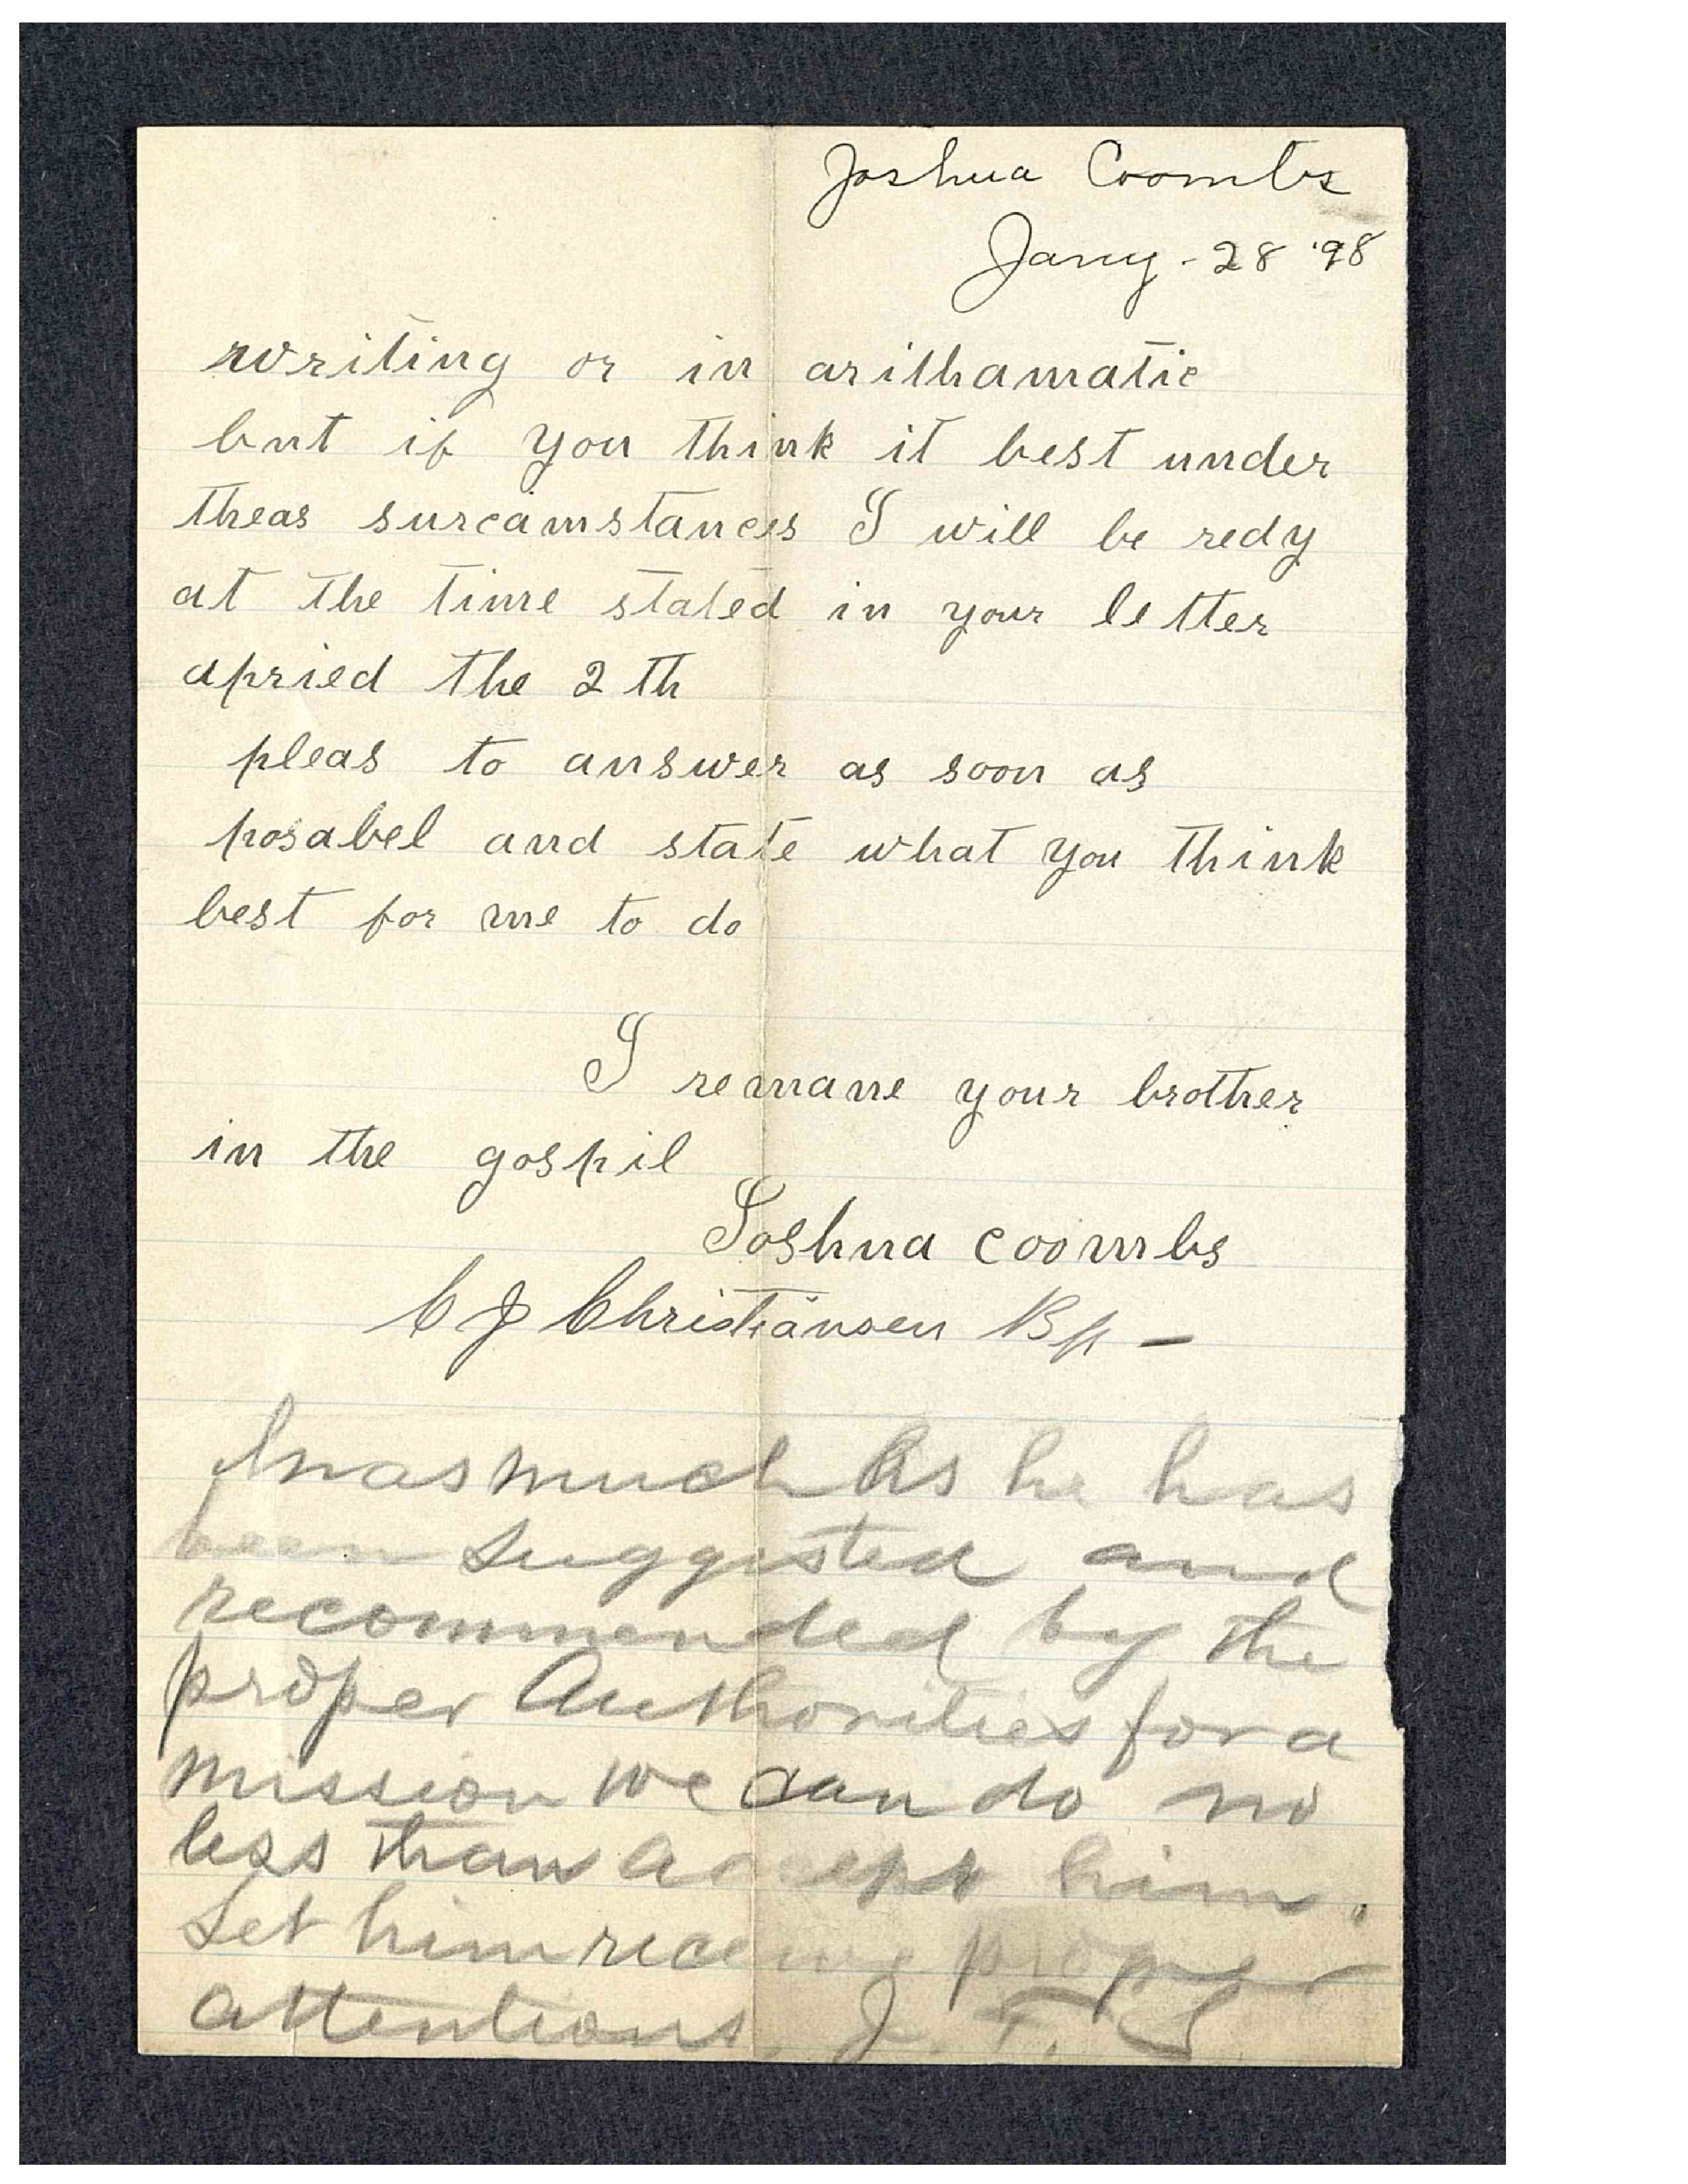 Joshua Coombs
Jany - 28 '98
writing or in arithamatic
but if you think it best under
theas surcamstances I will be redy
at the time stated in your letter
apried the 2 th
pleas to answer as soon as
posabel and state what you think
best for me to do
I remane your brother
in the gospil
Joshua coombs
C J Christiansen Bp -
Inasmuch As he has
been suggested and
recommended by the
proper Authorities for a
mission we can do no
less than accept him.
Let him receive proper
attentions. J. F. S.